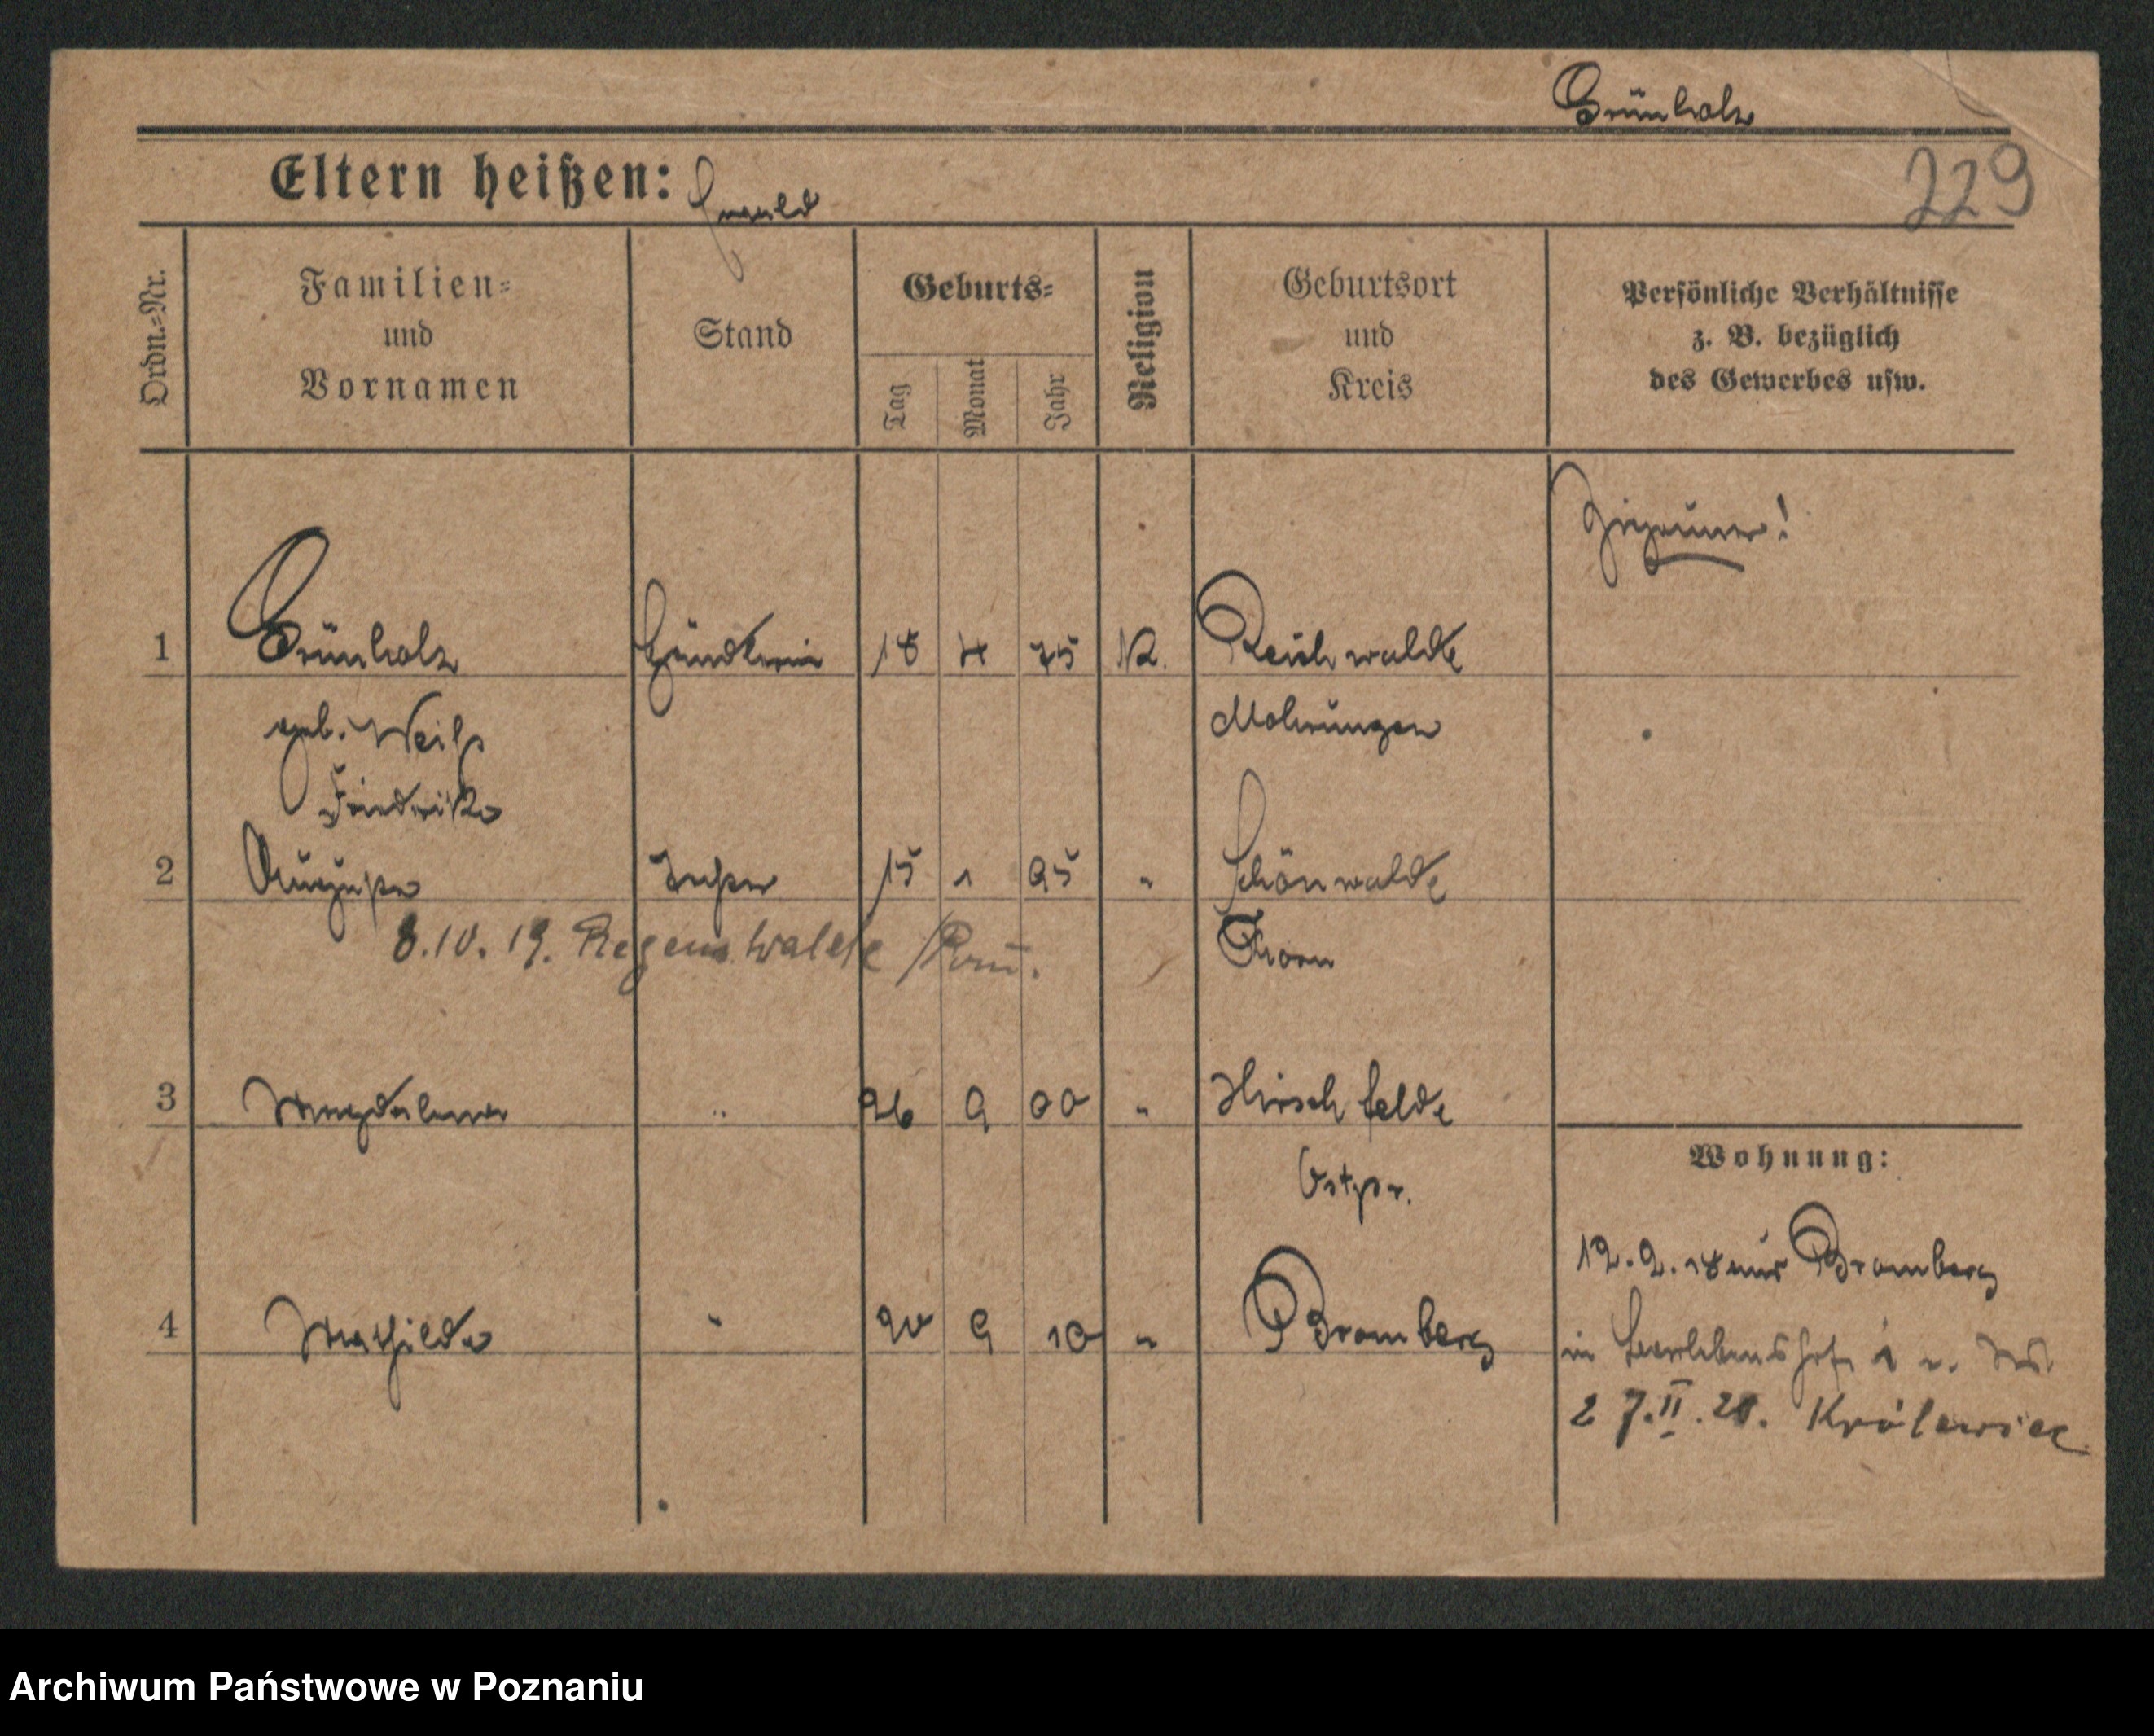 Grünholz
Eltern heißen:
229
Ordn.=Nr.
Familien=
und
Vornamen
Stand
Geburts=
Tag
Monat
Jahr
Religion
Geburtsort
und
Kreis
Persönliche Verhältnisse
z. B. bezüglich
des Gewerbes usw.
Zigeuner!
1 Grünholz Händlerin 18 4 75 K. Reichwalde
geb. Weiß Mohrungen
Friedrike
2 15 1 95 " Schönwalde
8.10.19. Regenswalde /Pom. Thorn
3 Magdalena " 26 9 00 " Hirschfelde
Ostpr.
Wohnung:
12.9.18 aus Bromberg
4 Mathilde " 20 9 10 " Bromberg
in
27.II.20. Królewiec
Archiwum Państwowe w Poznaniu